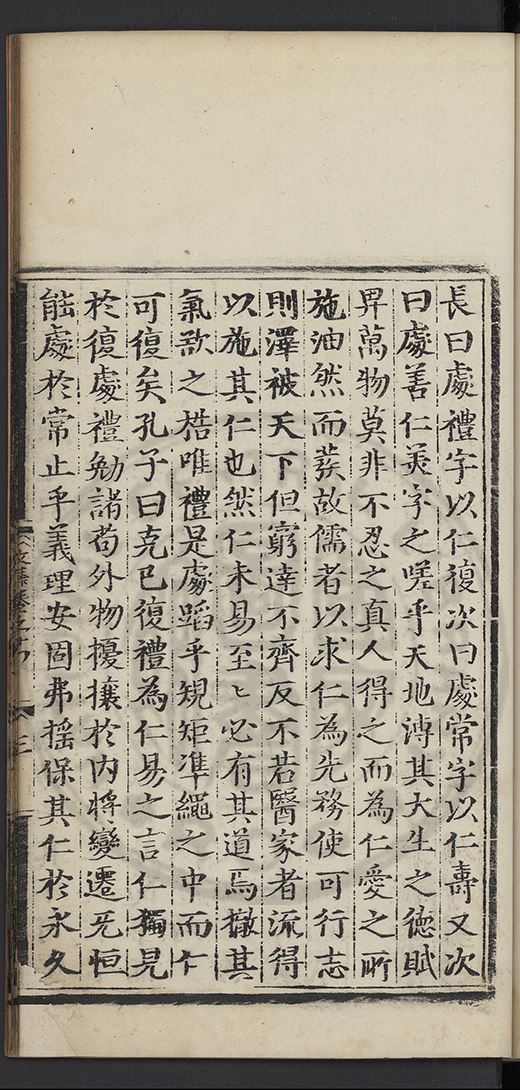 長曰處禮字以仁復次曰處常字以仁壽又次
曰處善仁美字之嗟乎天地溥其大生之德賦
畀萬物莫非不忍之真人得之而為仁愛之所
施油然而䓁故儒者以求仁為先務使可行志
則澤被天下但窮達不齊反不若醫家者流得
以施其仁也然仁未易至〻必有其道焉撤其
氣㱃之梏唯禮是處蹈乎䂓矩準繩之中而仁
可復矣孔子曰克已復禮為仁易之言仁獨見
於復處禮勉諸苟外物擾攘於內將變遷旡恒
能處於常止乎義理安固弗揺保其仁於永久
文集卷之十 三